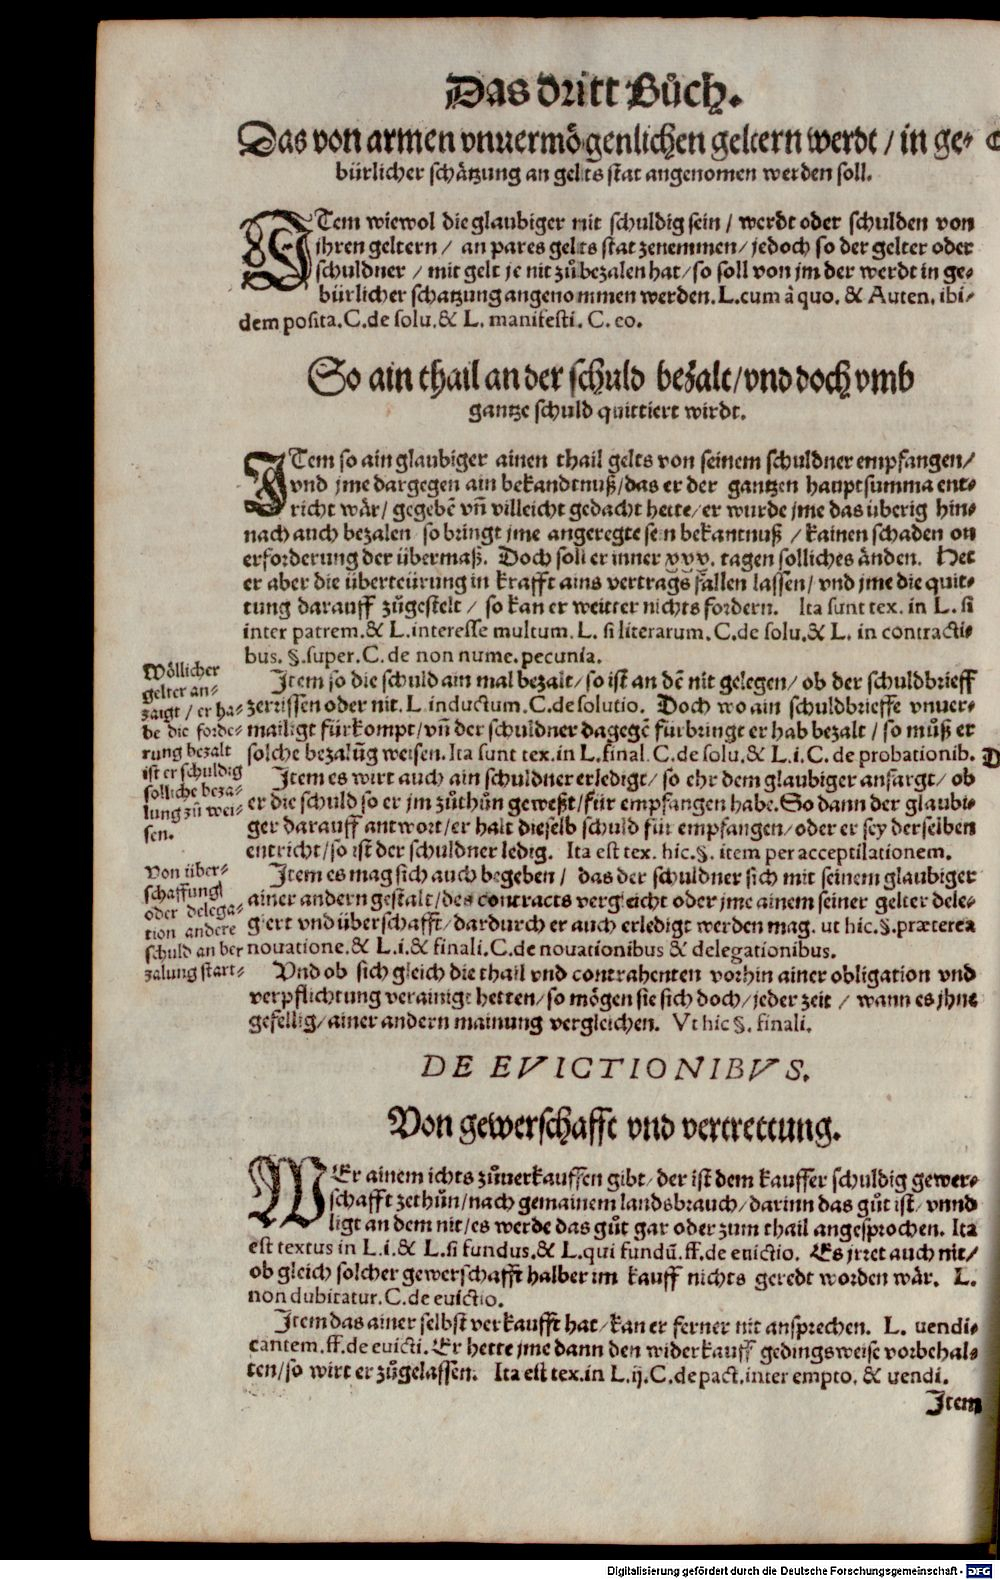 Das dritt Bůch.
Das von armen vnuermögenlichen geltern werdt / in ge-
bürlicher schätzung an gelts stat angenomen werden soll.
ITem wiewol die glaubiger nit schuldig sein / werdt oder schulden von
jhren geltern / an pares gelts stat zenemmen / jedoch so der gelter oder
schuldner / mit gelt je nit zů bezalen hat / so soll von jm der werdt in ge-
bürlicher schatzung angenommen werden. L. cum à quo. & Auten. ibi-
dem posita. C. de solu. & L. manifesti. C. eo.
So ain thail an der schuld bezalt / vnd doch vmb
gantze schuld quittiert wirdt.
ITem so ain glaubiger ainen thail gelts von seinem schuldner empfangen /
vnd jme dargegen ain bekandtnuß / das er der gantzen hauptsumma ent-
richt wär / gegebē vñ villeicht gedacht hette / er wurde jme das überig hin-
nach auch bezalen so bringt jme angeregte sein bekantnuß / kainen schaden on
erforderung der übermaß. Doch soll er inner xxx. tagen solliches änden. Het
er aber die überteürung in krafft ains vertrags fallen lassen / vnd jme die quit-
tung darauff zůgestelt / so kan er weitter nichts fordern. Ita sunt tex. in L. si
inter patrem. & L. interesse multum. L. si literarum. C. de solu. & L. in contracti-
bus. §. super. C. de non nume. pecunia.
Item so die schuld ain mal bezalt / so ist an dē nit gelegen / ob der schuldbrieff
zerrissen oder nit. L. inductum. C. de solutio. Doch wo ain schuldbrieffe vnuer-
mailigt fürkompt / vñ der schuldner dagegē fürbringt er hab bezalt / so můß er
solche bezalūg weisen. Ita sunt tex. in L. final. C. de solu. & L. i. C. de probationib.
Wöllicher
gelter an-
zaigt / er ha-
be die forde-
rung bezalt
ist er schuldig
solliche beza-
lung zů wei-
sen.
Item es wirt auch ain schuldner erledigt / so ehr dem glaubiger ansargt / ob
er die schuld so er jm zůthůn geweßt / für empfangen habe. So dann der glaubi-
ger darauff antwort / er halt dieselb schuld für empfangen / oder er sey derselben
entricht / so ist der schuldner ledig. Ita est tex. hic. §. item per acceptilationem.
Von über-
schaffung
oder delega-
tion andere
schuld an be-
zalung statt-
Item es mag sich auch begeben / das der schuldner sich mit seinem glaubiger
ainer andern gestalt / des contracts vergleicht oder jme ainem seiner gelter dele-
giert vnd überschafft / dardurch er auch erledigt werden mag. ut hic. §. præterea
nouatione. & L. i. & finali. C. de nouationibus & delegationibus.
Vnd ob sich gleich die thail vnd contrahenten vorhin ainer obligation vnd
verpflichtung verainigt hetten / so mögen sie sich doch / jeder zeit / wann es jhne
gefellig / ainer andern mainung vergleichen. Vt hic §. finali.
DE EVICTIONIBVS.
Von gewerschafft vnd vertrettung.
WEr ainem ichts zůuerkauffen gibt / der ist dem kauffer schuldig gewer-
schafft zethůn / nach gemainem landsbrauch / darinn das gůt ist / vnnd
ligt an dem nit / es werde das gůt gar oder zum thail angesprochen. Ita
est textus in L. i. & L. si fundus. & L. qui fundū. ff. de euictio. Es jrret auch nit /
ob gleich solcher gewerschafft halber im kauff nichts geredt worden wär. L.
non dubitatur. C. de euictio.
Item das ainer selbst verkaufft hat / kan er ferner nit ansprechen. L. uendi-
cantem. ff. de euicti. Er hette jme dann den widerkauff gedingsweise vorbehal-
ten / so wirt er zůgelassen. Ita est tex. in L. ij. C. de pact. inter empto. & uendi.
Item
Digitalisierung gefördert durch die Deutsche Forschungsgemeinschaft - DFG